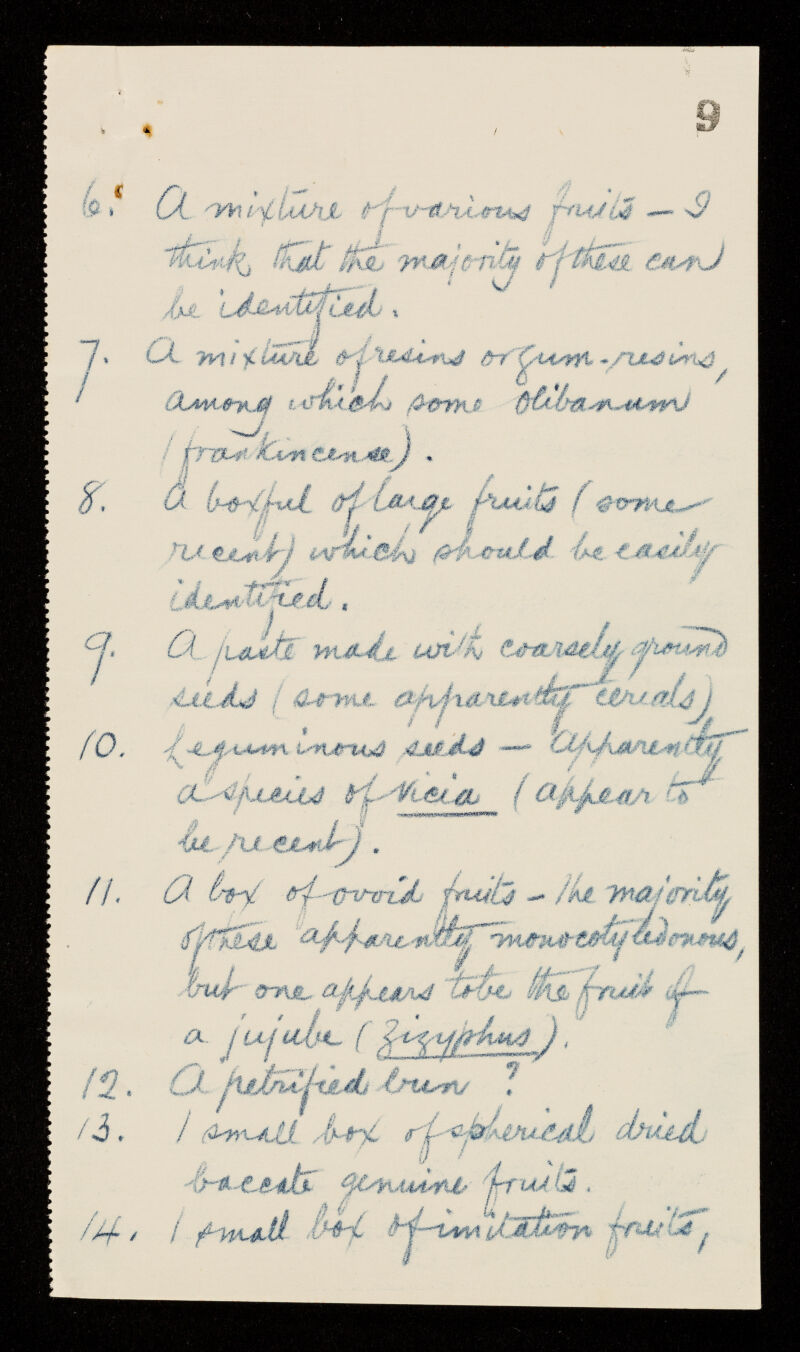 9
6. A mixture of various fruits – I
think that the majority of these can
be identified.
7. A mixture of resins or gum-resins,
among which some olibanum
(frankincense).
8. A boxful of large fruits (some
recent) which should be easily
identified.
9. A paste made with coarsely ground
seeds (some apparently cereals)
10. Leguminous seeds – apparently
a species of Vicia (appear to
be recent).
11. A box of ovoid fruits – the majority
of these apparently monocotyledonous,
but one appears to be the fruit of
a jujube (Zizyphus).
12. A petrified bun ?
13. 1 small box of spherical dried
baccate genuine fruits.
14. 1 small box of imitation fruits,